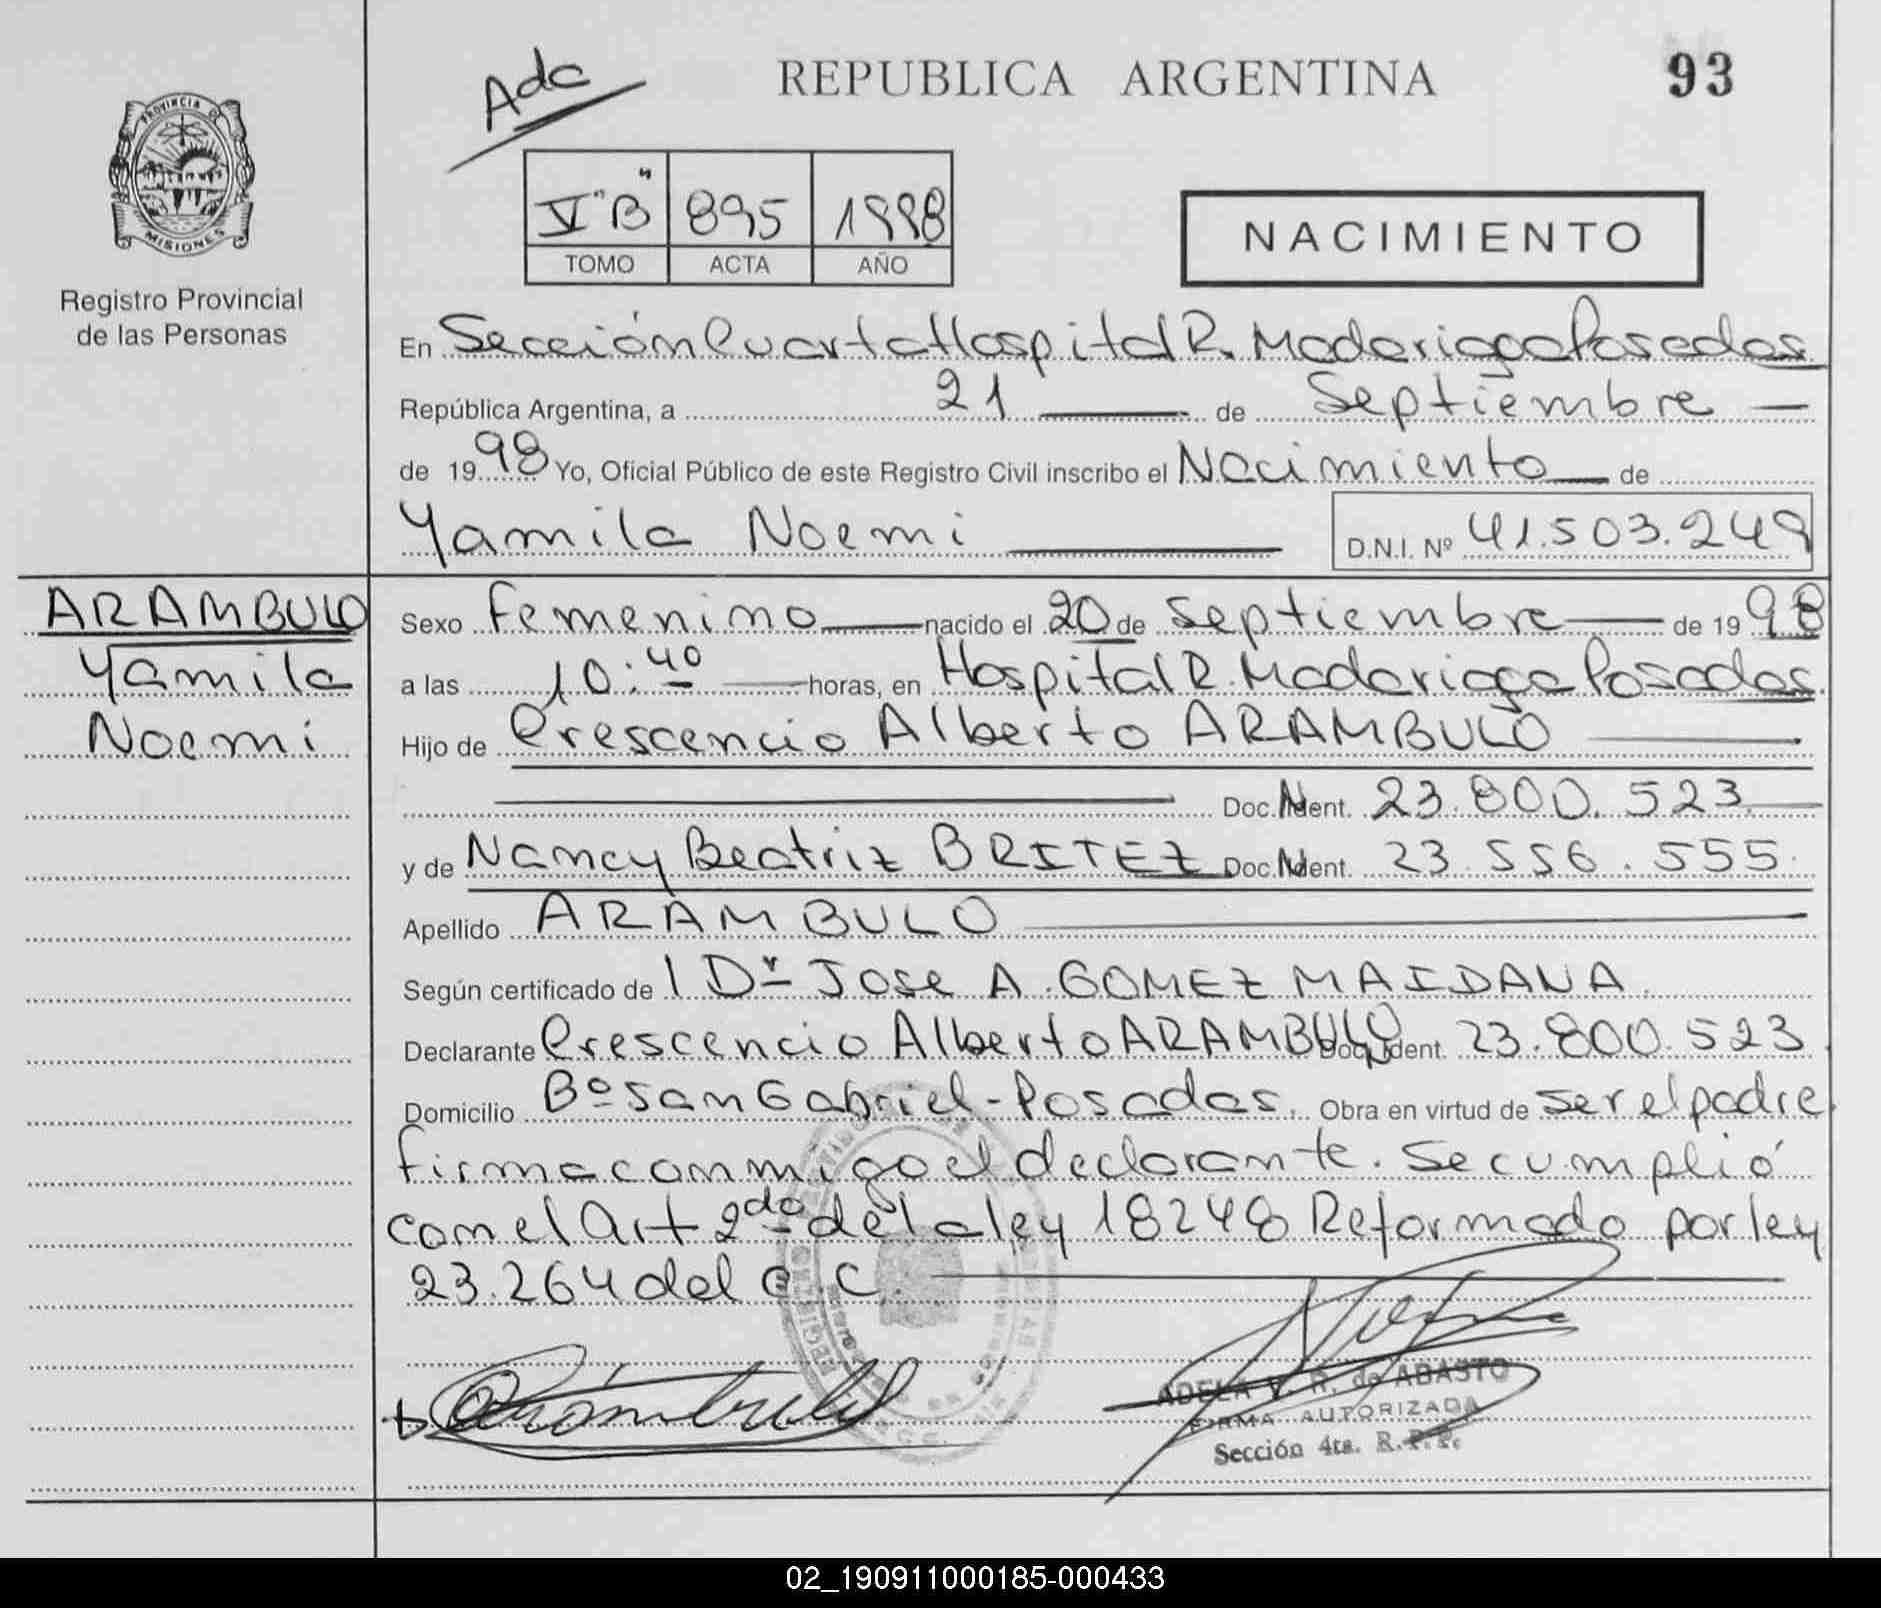 Ada
REPUBLICA ARGENTINA
93
PROVINCIA DE
MISIONES
Registro Provincial
de las Personas
V "B" 895 1998
TOMO ACTA AÑO
NACIMIENTO
En Sección Cuarta Hospital R. Madariaga Posadas
República Argentina, a 21 de Septiembre
de 1998 Yo, Oficial Público de este Registro Civil inscribo el Nacimiento de
Yamila Noemi D.N.I. Nº 41.503.249
ARAMBULO
Yamila
Noemi
Sexo Femenino nacido el 20 de Septiembre de 1998
a las 10:40 horas, en Hospital R. Madariaga Posadas
Hijo de Crescencio Alberto ARAMBULO
Doc. Ident. 23.800.523
y de Nancy Beatriz BRITEZ Doc. Ident. 23.556.555
Apellido ARAMBULO
Según certificado de l Dr Jose A. GOMEZ MAIDANA
Declarante Crescencio Alberto ARAMBULO Doc. Ident. 23.800.523
Domicilio Bº San Gabriel - Posadas. Obra en virtud de ser el padre
firma conmigo el declarante. Se cumplió
con el Art 2do de la ley 18248 Reformado por ley
23.264 del C.C.
Arámbulo
ADELA V. R. de ABASTO
FIRMA AUTORIZADA
Sección 4ta. R.P.P.
02_190911000185-000433